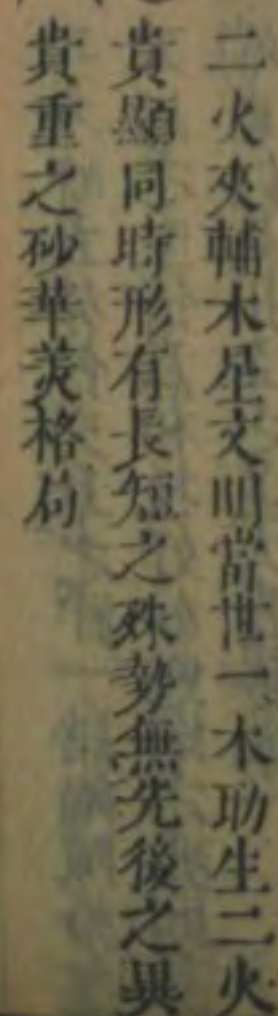 二火夾輔木星文明當世一木助生二火
貴顯同時形有長短之殊勢無先後之異
貴重之砂華美格局